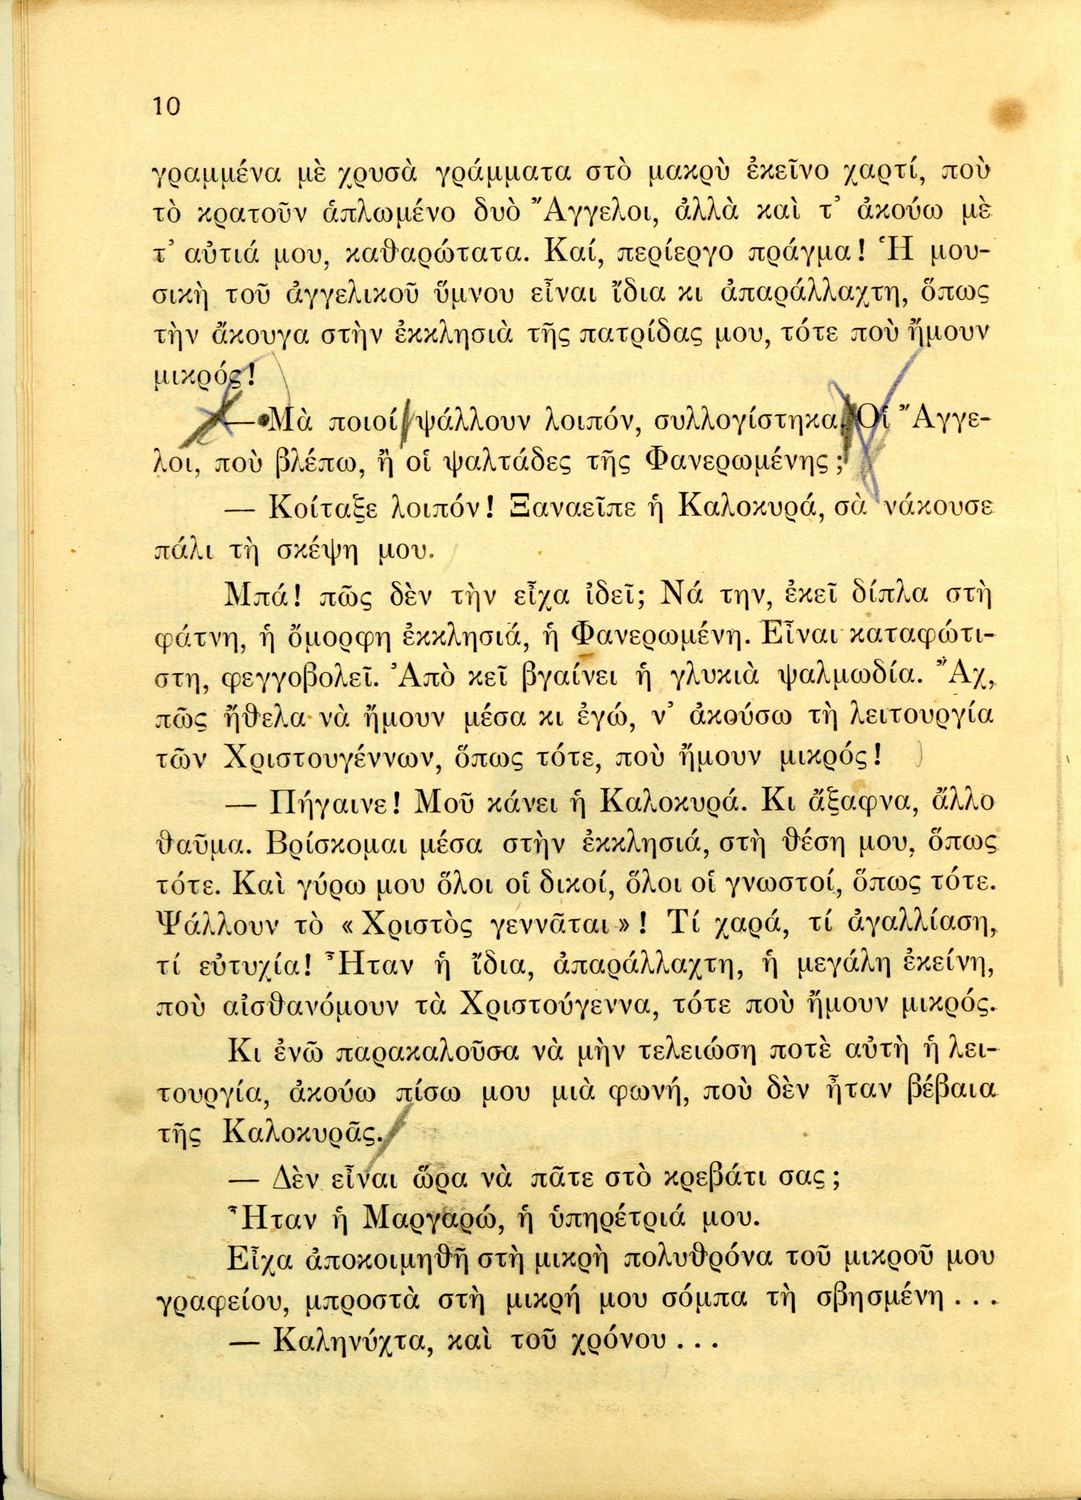 10
γραμμένα μὲ χρυσὰ γράμματα στὸ μακρὺ ἐκεῖνο χαρτί, ποὺ
τὸ κρατοῦν ἁπλωμένο δυὸ Ἄγγελοι, ἀλλὰ καὶ τ᾿ ἀκούω μὲ
τ᾿ αὐτιά μου, καθαρώτατα. Καί, περίεργο πράγμα! Ἡ μου-
σικὴ τοῦ ἀγγελικοῦ ὕμνου εἶναι ἴδια κι ἀπαράλλαχτη, ὅπως
τὴν ἄκουγα στὴν ἐκκλησιὰ τῆς πατρίδας μου, τότε ποὺ ἤμουν
μικρός!
— Μὰ ποιοί ψάλλουν λοιπόν, συλλογίστηκα. Οἱ Ἄγγε-
λοι, ποὺ βλέπω, ἢ οἱ ψαλτάδες τῆς Φανερωμένης;
— Κοίταξε λοιπόν! Ξαναεῖπε ἡ Καλοκυρά, σὰ νάκουσε
πάλι τὴ σκέψη μου.
Μπά! πῶς δὲν τὴν εἶχα ἰδεῖ; Νά την, ἐκεῖ δίπλα στὴ
φάτνη, ἡ ὄμορφη ἐκκλησιά, ἡ Φανερωμένη. Εἶναι καταφώτι-
στη, φεγγοβολεῖ. Ἀπὸ κεῖ βγαίνει ἡ γλυκιὰ ψαλμωδία. Ἄχ,
πῶς ἤθελα νὰ ἤμουν μέσα κι ἐγώ, ν᾿ ἀκούσω τὴ λειτουργία
τῶν Χριστουγέννων, ὅπως τότε, ποὺ ἤμουν μικρός!
— Πήγαινε! Μοῦ κάνει ἡ Καλοκυρά. Κι ἄξαφνα, ἄλλο
θαῦμα. Βρίσκομαι μέσα στὴν ἐκκλησιά, στὴ θέση μου, ὅπως
τότε. Καὶ γύρω μου ὅλοι οἱ δικοί, ὅλοι οἱ γνωστοί, ὅπως τότε.
Ψάλλουν τὸ «Χριστὸς γεννᾶται»! Τί χαρά, τί ἀγαλλίαση,
τί εὐτυχία! Ἦταν ἡ ἴδια, ἀπαράλλαχτη, ἡ μεγάλη ἐκείνη,
ποὺ αἰσθανόμουν τὰ Χριστούγεννα, τότε ποὺ ἤμουν μικρός.
Κι ἐνῶ παρακαλοῦσα νὰ μὴν τελειώση ποτὲ αὐτὴ ἡ λει-
τουργία, ἀκούω πίσω μου μιὰ φωνή, ποὺ δὲν ἦταν βέβαια
τῆς Καλοκυρᾶς.
— Δὲν εἶναι ὥρα νὰ πᾶτε στὸ κρεβάτι σας;
Ἦταν ἡ Μαργαρώ, ἡ ὑπηρέτριά μου.
Εἶχα ἀποκοιμηθῆ στὴ μικρὴ πολυθρόνα τοῦ μικροῦ μου
γραφείου, μπροστὰ στὴ μικρή μου σόμπα τὴ σβησμένη . . .
— Καληνύχτα, καὶ τοῦ χρόνου . . .